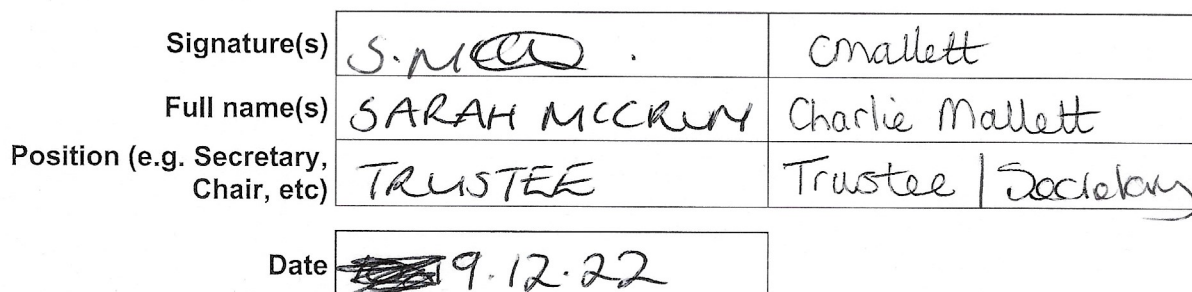 Signature(s) S.M cmallett
Full name(s) SARAH MCCRUM Charlie Mallett
Position (e.g. Secretary, Chair, etc) TRUSTEE Trustee | Secretary
Date 9.12.22